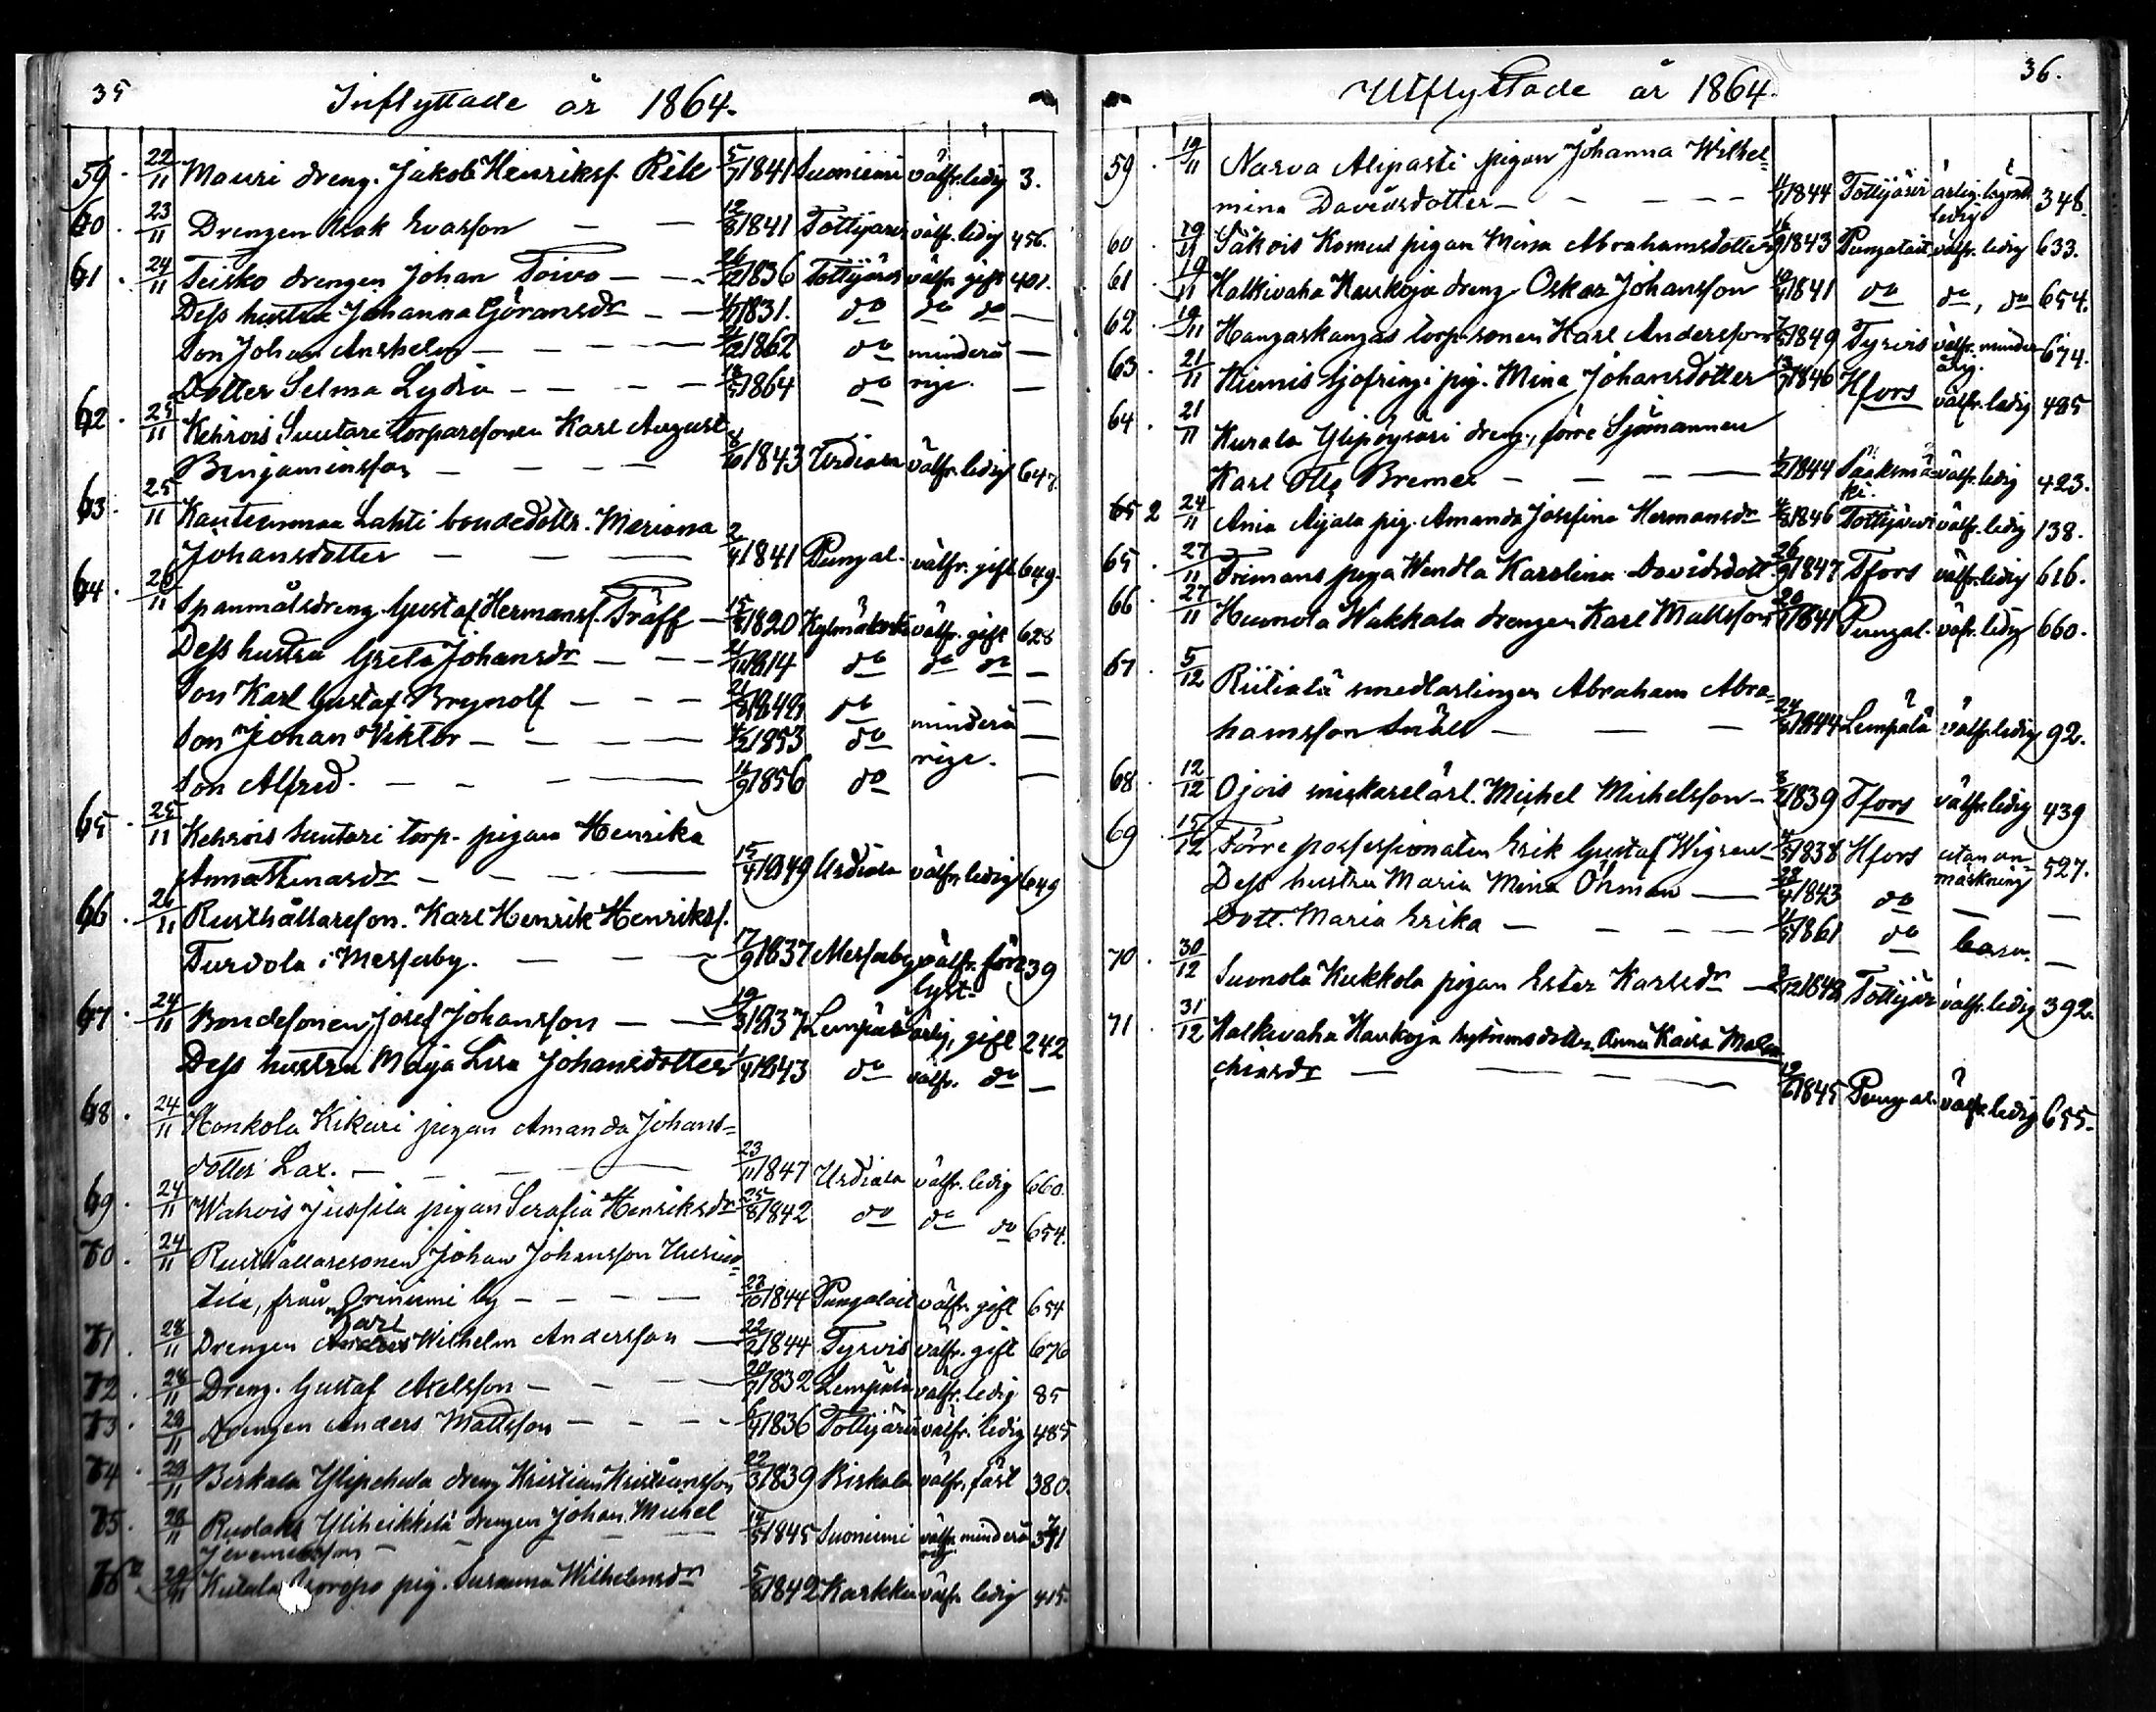 35
Inflyttade år 1864.
59. 22/11 Mauri dreng. Jakob Henriksf. Rik 5/7 1841 Suoniemi välfr. ledig 3.
60. 23/11 Drengen Isak Evasson — — 12/8 1841 Tottijärvi välfr. ledig 456.
61. 24/11 Teisko drengen Johan Toivo — — 26/12 1836 Tottijärvi välfr. gift 401.
Dess hustru Johanna Göransdr — — 1831. do do do —
Son Johan Anshelm — — — 1862 do minderå —
Dotter Selma Lydia — — — 18/5 1864 do rige. —
62. 25/11 Kehrois Suutari torparesonen Karl August
Benjaminsson — — — 8/10 1843 Urdiala välfr. ledig 647.
63. 25/11 Kauteenmaa Lahti bondedottr. Mariana
Johansdotter — — — 2/4 1841 Pungal. välfr. gift 649.
64. 26/11 Spanmålsdreng. Gustaf Hermansf. Träff — 15/8 1820 Kylmäkoski välfr. gift 628
Dess hustru Greta Johansdr — — 1814 do do do —
Son Karl Gustaf Brynolf — — — 1849 do —
Son Johan Viktor — — — 1853 do minderå —
Son Alfred. — — — 11/9 1856 do rige. —
65. 25/11 Kehrois Suutari torp. pigan Henrika
Anna Thomasdr — — — 15/4 1849 Urdiala välfr. ledig 649
66. 26/11 Rusthållareson. Karl Henrik Henriksf.
Turvola i Mesruby. — — — 17/9 1837 Mesruby välfr. för 239
lyst.
67. 24/11 Bondesonen Josef Johansson — — 19/3 1837 Lempälä ärlig, gift 242
Dess hustru Maja Lisa Johansdotter 1/4 1843 do välfr. do —
68. 24/11 Honkola Kikuri pigan Amanda Johans-
dotter Lax. — — — 23/11 1847 Urdiala välfr. ledig 660.
69. 24/11 Wahois Jussila pigan Serafia Henriksdr 25/8 1842 do do do 654.
70. 24/11 Rusthållaresonen Johan Johansson Uusi-
tila, från Oriniemi by — — — 22/10 1844 Pungalait välfr. gift 654
Karl
71. 28/11 Drengen Anders Wilhelm Andersson — 22/2 1844 Tyrvis välfr. gift 676
72. 28/11 Dreng. Gustaf Axelsson — — — 20/7 1832 Lempälä välfr. ledig 85
73. 28/11 Drengen Anders Mattsson — — — 6/4 1836 Tottijärvi välfr. ledig 485
74. 28/11 Birkala Ylipehula dreng Kristian Kristiansson 22/3 1839 Birkala välfr. fäst 380.
75. 28/11 Rudala Yliheikkilä drengen Johan Mikel 19/5 1845 Suoniemi välfr. minderå 371
Jeremiasson — — — rig.
76. 29/11 Kulala pig. Susanna Wilhelmsdr 5/8 1842 Karkku välfr. ledig 415.
36.
Utflyttade år 1864.
59. 19/11 Narva Alipasti pigan Johanna Wilhel-
mina Davidsdotter — — — 1844 Tottijärvi ärlig.
ledig 348.
60. 19/11 Säkois Komus pigan Mina Abrahamsdotter 1843 Pungalait välfr. ledig 633.
61. 19/11 Halkivaha Haukoja dreng Oskar Johansson 1841 do do, do 654.
62. 19/11 Hangaskangas torpsonen Karl Andersson 1849 Tyrvis välfr. minder- 674.
årig.
63. 21/11 Hiunis Sjöfringi pig. Mina Johansdotter 1846 Hfors välfr. ledig 485
64. 21/11 Kurala Ylipöysäri dreng., förre Sjömannen
Karl Otto Bremer — — — 1/2 1844 Sääksmä- välfr. ledig 423.
ki.
65 2 24/11 Ania Aijala pig. Amanda Josefina Hermansdr 1846 Tottijärvi välfr. ledig 138.
65. 27/11 Frimans piga Wendla Karolina Davidsdott. 26/9 1847 Tfors välfr. ledig 616.
66. 27/11 Huunola Wakkala drengen Karl Mattsson 1841 Pungal. välfr. ledig 660.
67. 5/12 Riitialä smedlärlingen Abraham Abra-
hamsson Snäll — — — 1844 Lempälä välfr. ledig 92.
68. 12/12 Ojois snickarelärl. Michel Michelsson — 1839 Tfors välfr. ledig 439
69. 15/12 Förre possessionaten Erik Gustaf Wigren — 1838 Hfors utan an- 527.
märkning
Dess hustru Maria Mina Öhman — 28/4 1843 do — —
Dott. Maria Erika — — — 1861 do barn. —
70. 30/12 Suonola Kukkola pigan Ester Karlsdr — 1843 Tottijär välfr. ledig 392.
71. 31/12 Halkivaha Haukoja hytimsdotter. Anna Kaisa Mala-
chiasdr — — — 19/6 1845 Pungal. välfr. ledig 655.